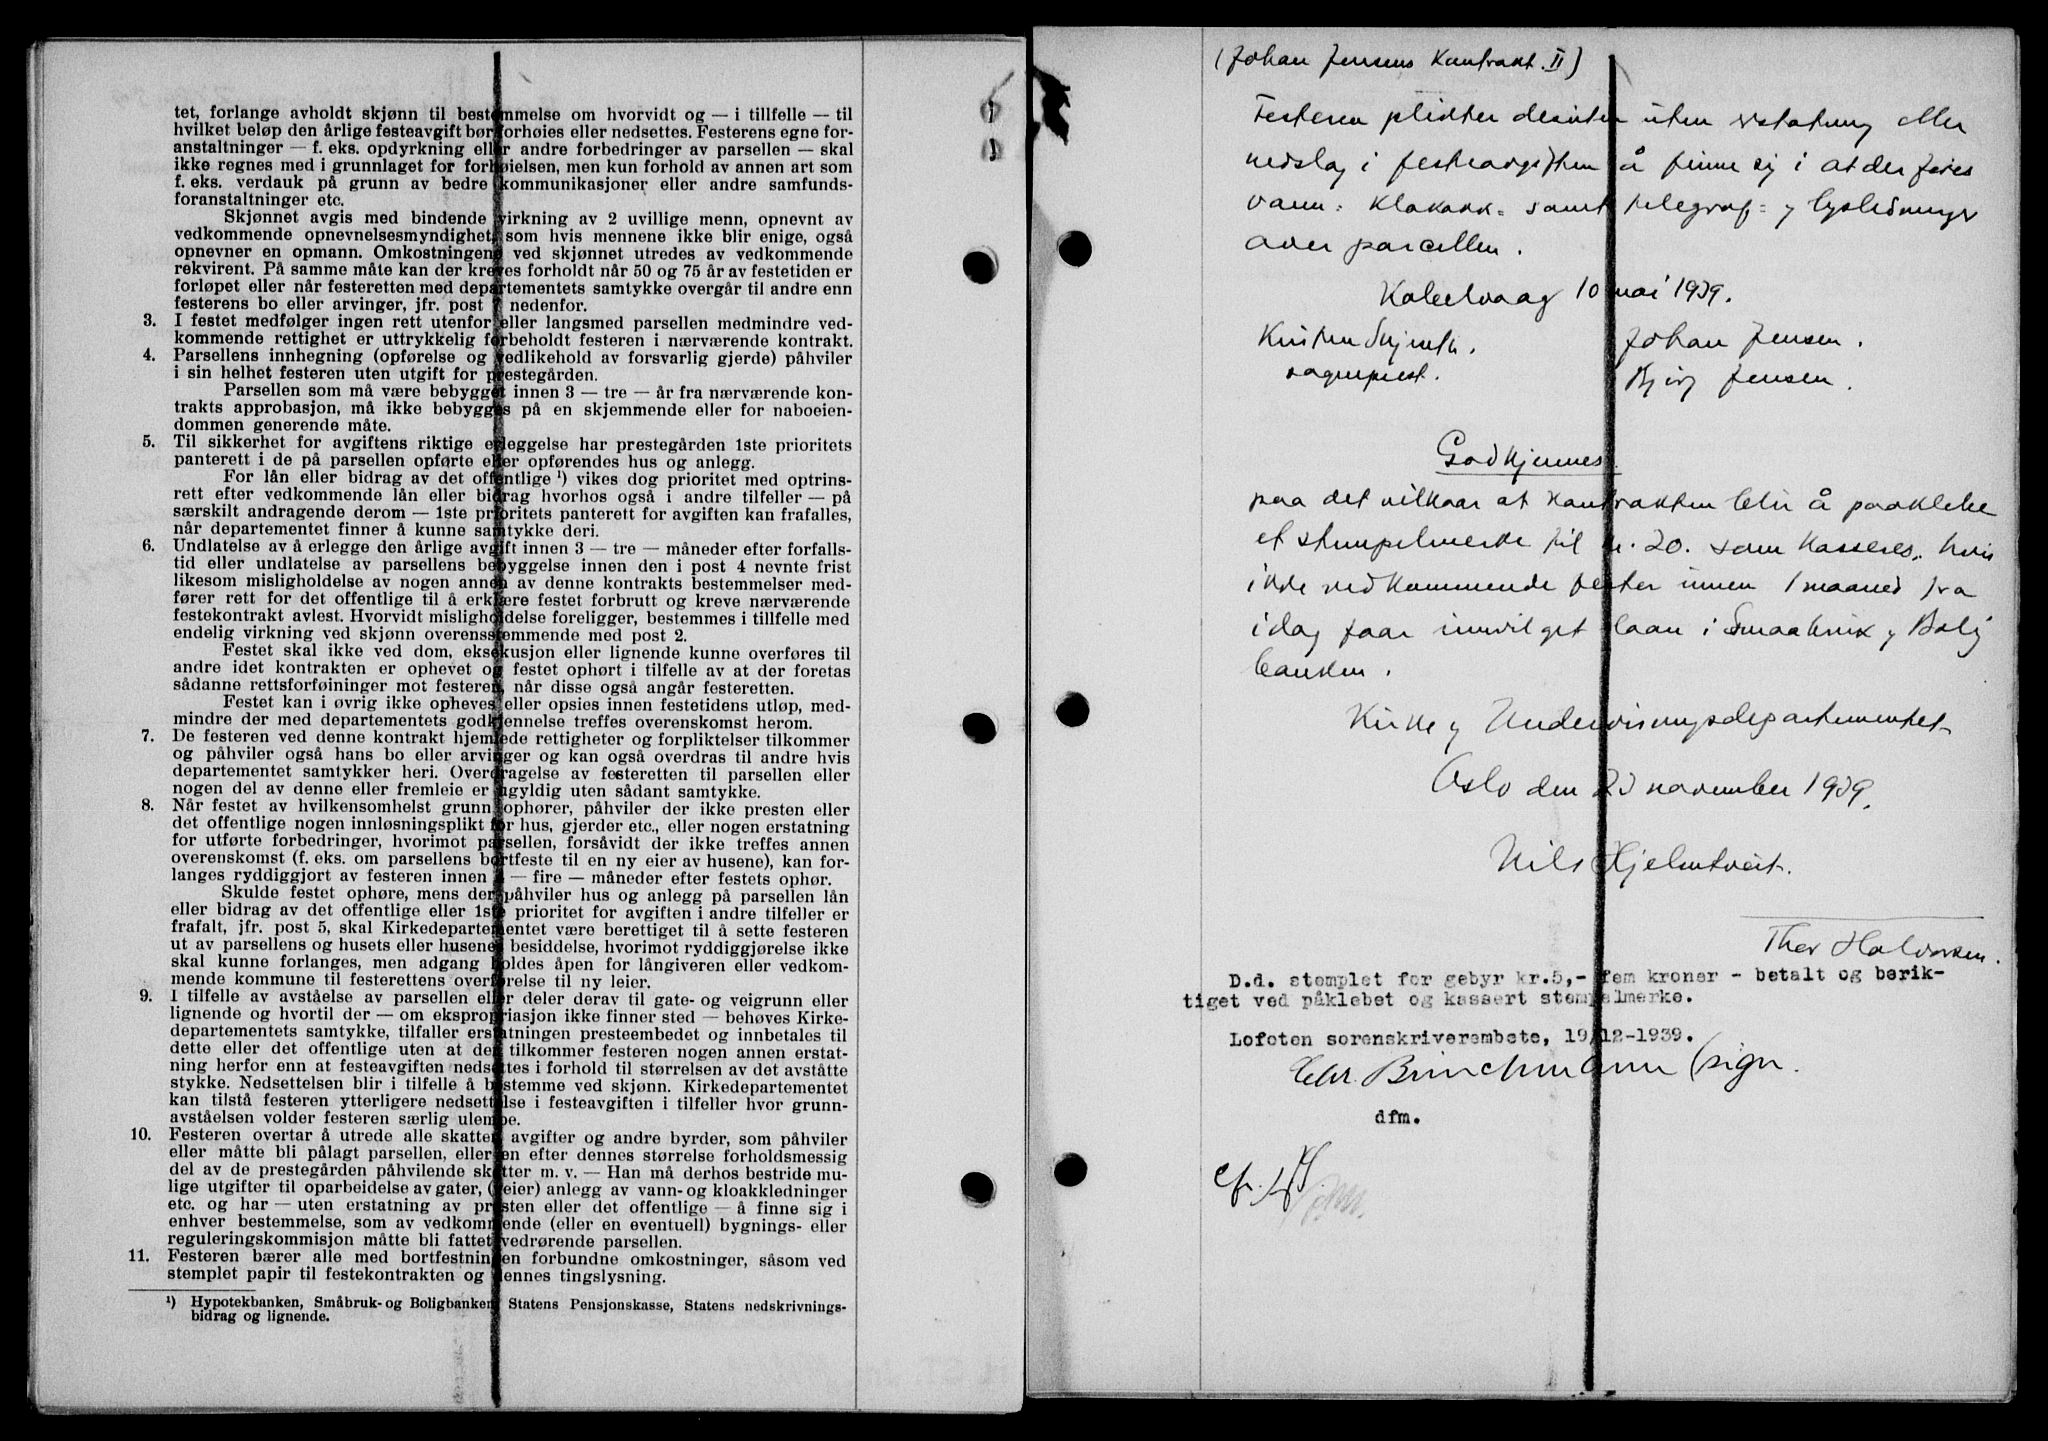 tet, forlange avholdt skjønn til bestemmelse om hvorvidt og — i tillfelle — til
hvilket beløp den årlige festeavgift bør forhøies eller nedsettes. Festerens egne for-
anstaltninger — f. eks. opdyrkning eller andre forbedringer av parsellen — skal
ikke regnes med i grunnlaget for forhøielsen, men kun forhold av annen art som
f. eks. verdauk på grunn av bedre kommunikasjoner eller andre samfunds-
foranstaltninger etc.
Skjønnet avgis med bindende virkning av 2 uvillige menn, opnevnt av
vedkommende opnevnelsesmyndighet, som hvis mennene ikke blir enige, også
opnevner en opmann. Omkostningene ved skjønnet utredes av vedkommende
rekvirent. På samme måte kan der kreves forholdt når 50 og 75 år av festetiden er
forløpet eller når festeretten med departementets samtykke overgår til andre enn
festerens bo eller arvinger, jfr. post 7 nedenfor.
3. I festet medfølger ingen rett utenfor eller langsmed parsellen medmindre ved-
kommende rettighet er uttrykkelig forbeholdt festeren i nærværende kontrakt.
4. Parsellens innhegning (opførelse og vedlikehold av forsvarlig gjerde) påhviler
i sin helhet festeren uten utgift for prestegården.
Parsellen som må være bebygget innen 3 — tre — år fra nærværende kon-
trakts approbasjon, må ikke bebygges på en skjemmende eller for naboeien-
dommen generende måte.
5. Til sikkerhet for avgiftens riktige erleggelse har prestegården 1ste prioritets
panterett i de på parsellen opførte eller opførendes hus og anlegg.
For lån eller bidrag av det offentlige ¹) vikes dog prioritet med optrins-
rett efter vedkommende lån eller bidrag hvorhos også i andre tilfeller — på
særskilt andragende derom — 1ste prioritets panterett for avgiften kan frafalles,
når departementet finner å kunne samtykke deri.
6. Undlatelse av å erlegge den årlige avgift innen 3 — tre — måneder efter forfalls-
tid eller undlatelse av parsellens bebyggelse innen den i post 4 nevnte frist
likesom misligholdelse av nogen annen av denne kontrakts bestemmelser med-
fører rett for det offentlige til å erklære festet forbrutt og kreve nærværende
festekontrakt avlest. Hvorvidt misligholdelse foreligger, bestemmes i tilfelle med
endelig virkning ved skjønn overensstemmende med post 2.
Festet skal ikke ved dom, eksekusjon eller lignende kunne overføres til
andre idet kontrakten er ophevet og festet ophørt i tilfelle av at der foretas
sådanne rettsforføininger mot festeren, når disse også angår festeretten.
Festet kan i øvrig ikke opheves eller opsies innen festetidens utløp, med-
mindre der med departementets godkjennelse treffes overenskomst herom.
7. De festeren ved denne kontrakt hjemlede rettigheter og forpliktelser tilkommer
og påhviler også hans bo eller arvinger og kan også overdras til andre hvis
departementet samtykker heri. Overdragelse av festeretten til parsellen eller
nogen del av denne eller fremleie er ugyldig uten sådant samtykke.
8. Når festet av hvilkensomhelst grunn ophører, påhviler der ikke presten eller
det offentlige nogen innløsningsplikt for hus, gjerder etc., eller nogen erstatning
for utførte forbedringer, hvorimot parsellen, forsåvidt der ikke treffes annen
overenskomst (f. eks. om parsellens bortfeste til en ny eier av husene), kan for-
langes ryddiggjort av festeren innen 4 — fire — måneder efter festets ophør.
Skulde festet ophøre, mens der påhviler hus og anlegg på parsellen lån
eller bidrag av det offentlige eller 1ste prioritet for avgiften i andre tilfeller er
frafalt, jfr. post 5, skal Kirkedepartementet være berettiget til å sette festeren
ut av parsellens og husets eller husenes besiddelse, hvorimot ryddiggjørelse ikke
skal kunne forlanges, men adgang holdes åpen for långiveren eller vedkom-
mende kommune til festerettens overførelse til ny leier.
9. I tilfelle av avståelse av parsellen eller deler derav til gate- og veigrunn eller
lignende og hvortil der — om ekspropriasjon ikke finner sted — behøves Kirke-
departementets samtykke, tilfaller erstatningen presteembedet og innbetales til
dette eller det offentlige uten at der tilkommer festeren nogen annen erstat-
ning herfor enn at festeavgiften nedsettes i forhold til størrelsen av det avståtte
stykke. Nedsettelsen blir i tilfelle å bestemme ved skjønn. Kirkedepartementet
kan tilstå festeren ytterligere nedsettelse i festeavgiften i tilfeller hvor grunn-
avståelsen volder festeren særlig ulempe.
10. Festeren overtar å utrede alle skatter, avgifter og andre byrder, som påhviler
eller måtte bli pålagt parsellen, eller en efter dennes størrelse forholdsmessig
del av de prestegården påhvilende skatter m. v. — Han må derhos bestride mu-
lige utgifter til oparbeidelse av gater, (veier) anlegg av vann- og kloakkledninger
etc. og har — uten erstatning av presten eller det offentlige — å finne sig i
enhver bestemmelse, som av vedkommende (eller en eventuell) bygnings- eller
reguleringskommisjon måtte bli fattet vedrørende parsellen.
11. Festeren bærer alle med bortfestningen forbundne omkostninger, såsom ved
stemplet papir til festekontrakten og dennes tingslysning.
¹) Hypotekbanken, Småbruk- og Boligbanken, Statens Pensjonskasse, Statens nedskrivnings-
bidrag og lignende.
(Johan Jensens Kontrakt. II)
Festeren plikter desuten uten erstatning eller
nedslag i festeavgiften å finne sig i at der føres
vann- kloakk- samt telegraf- og lysledninger
over parcellen.
Kabelvaag 10 mai 1939.
Johan Jensen.
sogneprest.
Jensen.
Godkjennes
paa det vilkaar at kontrakten blir å paaklebe
et stempelmerke til kr. 20. som kasseres, hvis
ikke vedkommende fester innen 1 maaned fra
idag faar innvilget laan i Smaabruk og Bolig
banken.
Kirke og Undervisningsdepartementet
Oslo den 23 november 1939.
Nils Hjelmtveit.
Thor Halvorsen.
D.d. stemplet for gebyr kr.5,- fem kroner - betalt og berik-
tiget ved påklebet og kassert stempelmerke.
Lofoten sorenskriverembete, 19/12-1939.
Chr. Brinchmann (sign
dfm.